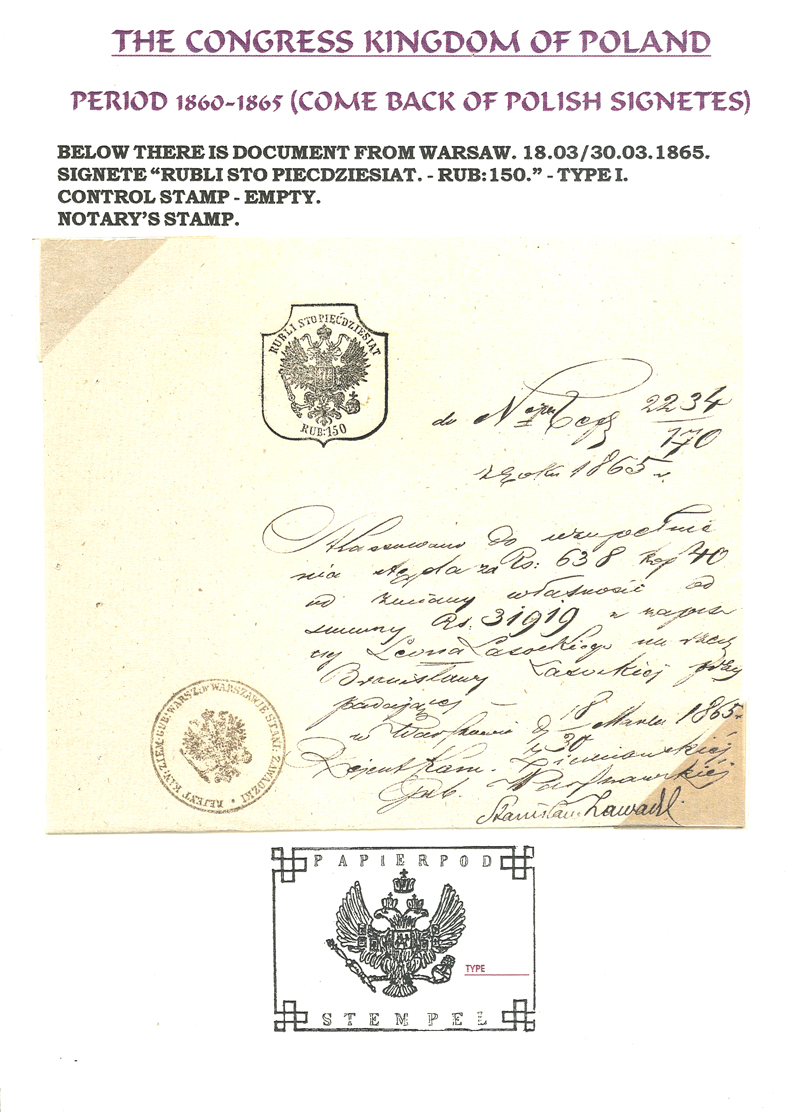 THE CONGRESS KINGDOM OF POLAND
PERIOD 1860-1865 (COME BACK OF POLISH SIGNETES)
BELOW THERE IS DOCUMENT FROM WARSAW. 18.03/30.03.1865.
SIGNETE “RUBLI STO PIECDZIESIAT. - RUB:150.” - TYPE I.
CONTROL STAMP - EMPTY.
NOTARY’S STAMP.
RUBLI STO PIĘĆDZIESIĄT
RUB:150
do 2234
170
z roku 1865 r.
Skassowano do uzupełnie
nia stępla za Rs: 638 kop 40
od zmiany własności od
summy Rs. 31919 z
Leona Lasockiego na rzecz
Bronisławy Lasockiej przy
padającej
w Warszawie d 18/30 Marca 1865 r.
Rejent Kan. Ziemiańskiéj
Gub. Warszawskiéj
Stanisław Zawadzki
REJENT KAN: ZIEM: GUB: WARSZ: w WARSZAWIE STANI: ZAWADZKI
PAPIER POD
TYPE
STEMPEL